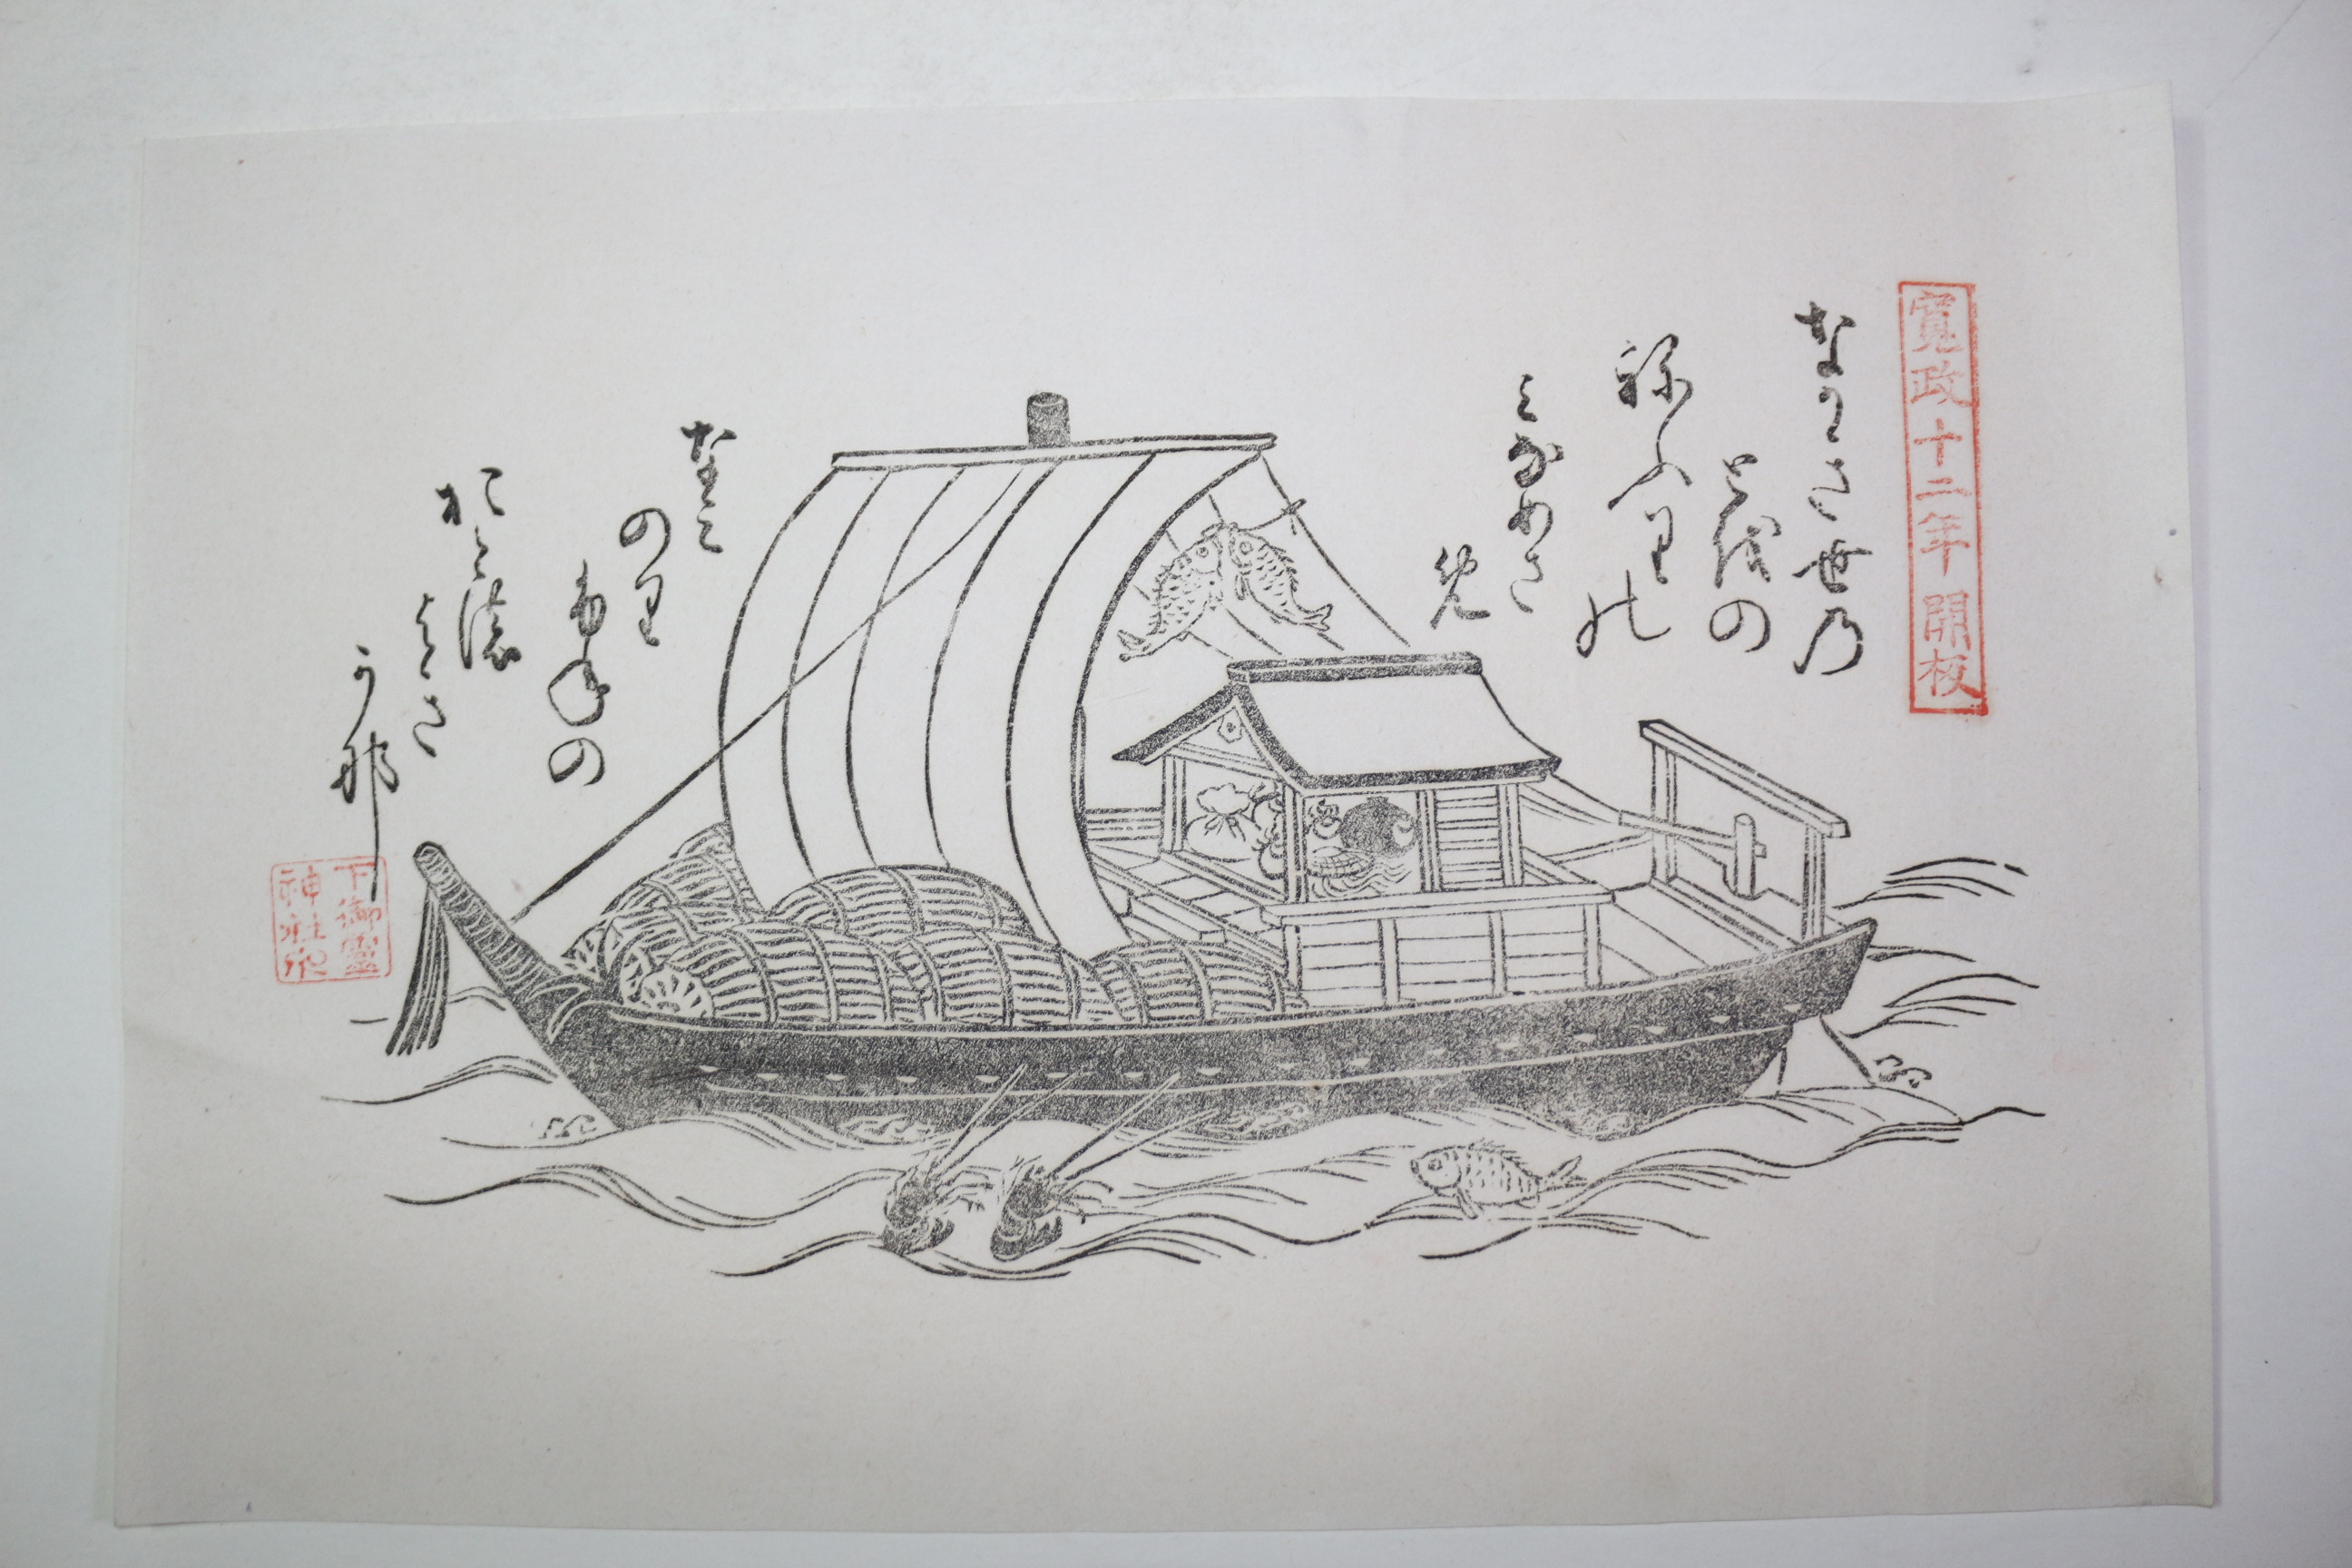 寛政十二年開板
なかき世乃
とをの
祢ふりの
みなめさ
免
なみ
のり
ふねの
おと濃
よき
可那
下御霊
神社印